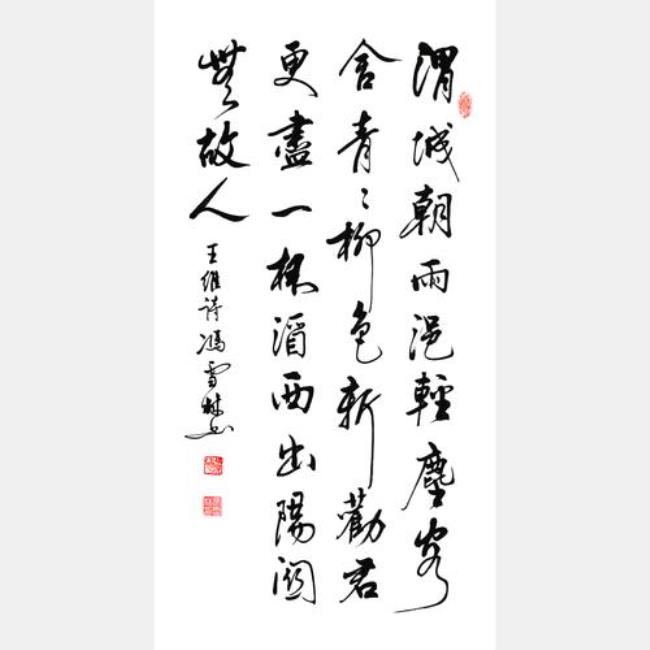 渭城朝雨浥輕塵客
舍青々柳色新勸君
更盡一杯酒西出陽關
無故人
王維詩馮雪林书